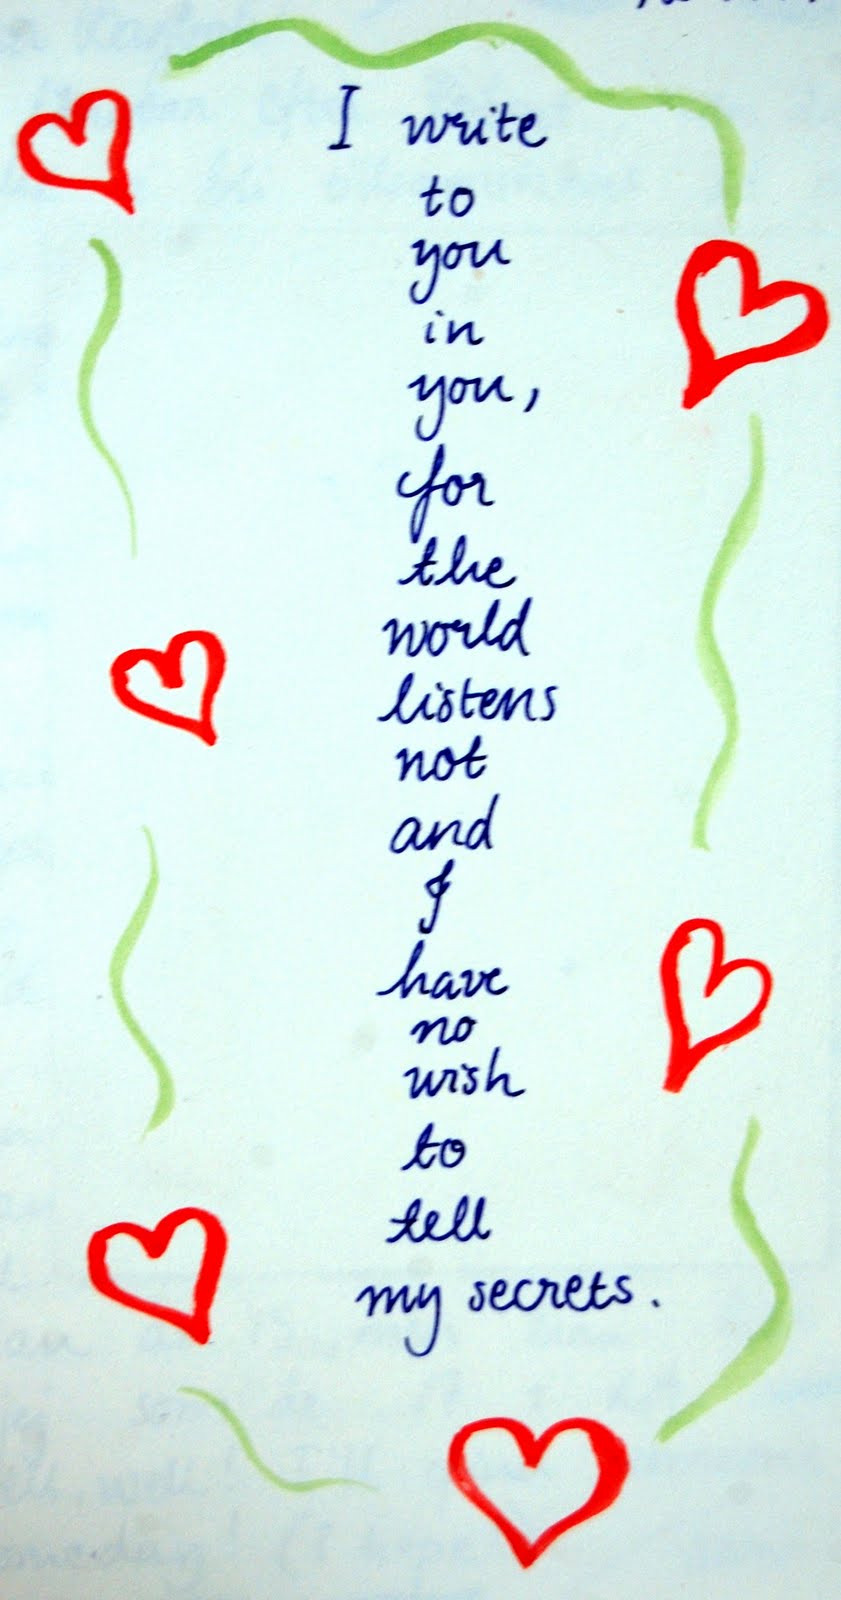 I write
to
you
in
you,
for
the
world
listens
not
and
I
have
no
wish
to
tell
my secrets.